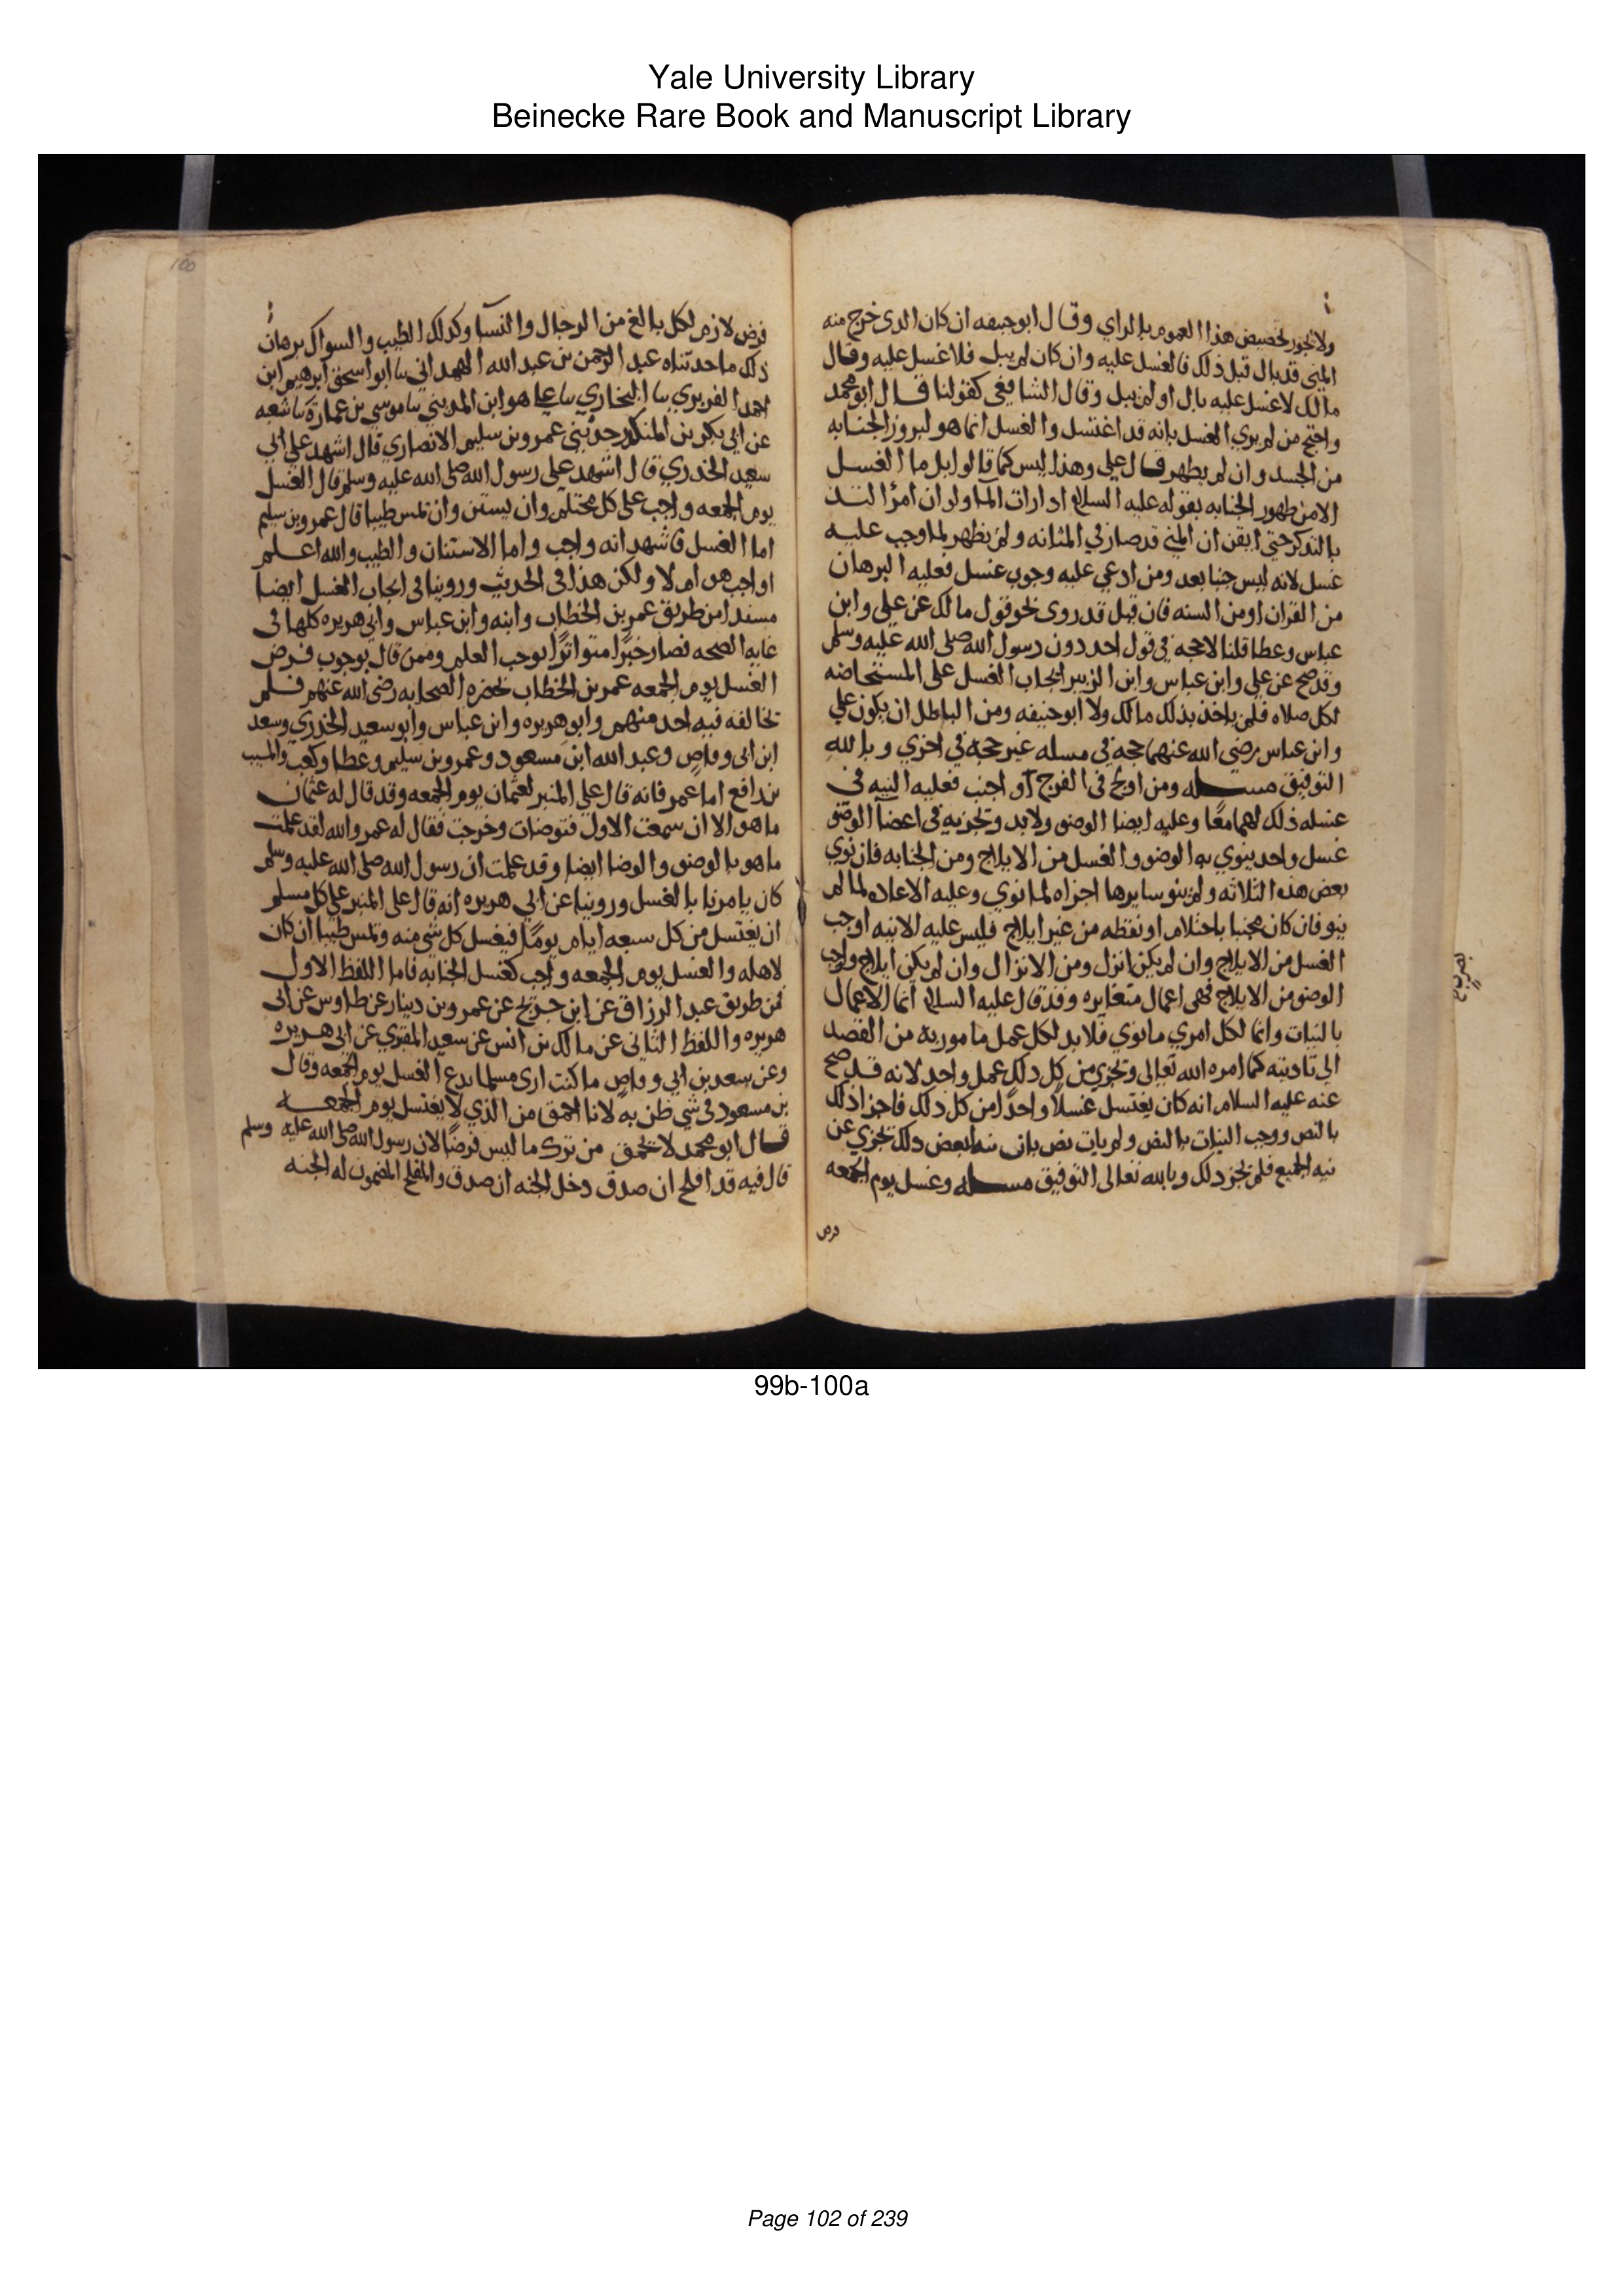 Yale University Library
Beinecke Rare Book and Manuscript Library
ولا يجوز تخصيص هذا العموم بالراي وقال ابو حنيفه ان كان الذي خرج منه
المني قد بال قبل ذلك فالغسل عليه وان كان لم يبل فلا غسل عليه وقال
مالك لا غسل عليه بال او لم يبل وقال الشافعي كقولنا قال ابو محمد
واحتج من لم يري الغسل بانه قد اغتسل والغسل انما هو لبروز الجنابه
من الجسد وان لم يظهر قال علي وهذا ليس كما قالوا بل ما الغسل
الا من ظهور الجنابه بقوله عليه السلام اذا رات الما ولو ان امرًا التذ
بالتذكر حتي ايقن ان المني قد صار في المثانه ولم يظهر لما وجب عليه
غسل لانه ليس جنبا بعد ومن ادعي عليه وجوب غسل فعليه البرهان
من القران او من السنه فان قيل قد روى نحو قول مالك عن علي وابن
عباس وعطا قلنا لا حجه في قول احد دون رسول الله صلى الله عليه وسلم
وقد صح عن علي وابن عباس وابن الزبير ايجاب الغسل على المستحاضه
لكل صلاه فلم ياخذ بذلك مالك ولا ابو حنيفه ومن الباطل ان يكون علي
وابن عباس رضي الله عنهما حجه في مسله غير حجه في اخري وبالله
التوفيق مسله ومن اولج في الفرج او اجنب فعليه النيه في
غسله ذلك لهما معًا وعليه ايضا الوضو ولا بد وتجزيه في اعضآ الوضو
غسل واحد ينوي به الوضو والغسل من الايلاج ومن الجنابه فان نوي
بعض هذه الثلاثه ولم ينو سايرها اجزاه لما نوي وعليه الاعاده لما لم
ينو فان كان مجنبا باحتلام او نقظه من غير ايلاج فليس عليه الا نيه اوجب
الغسل من الايلاج وان لم يكن انزل ومن الانزال وان لم يكن ايلاج واوجب
الوضو من الايلاج فهي اعمال متغايره وقد قال عليه السلام انما الاعمال
بالنيات وانما لكل امري ما نوي فلا بد لكل عمل مامور به من القصد
الي تاديته كما امره الله تعالى وتجزي من كل ذلك عمل واحد لانه قد صح
عنه عليه السلام انه كان يغتسل غسلًا واحدًا من كل ذلك فاجزا ذلك
بالنص ووجب النيات بالنص ولم يات نص بان نيه لبعض ذلك تجزي عن
نيه الجميع فلم تجز ذلك وبالله تعالى التوفيق مسله وغسل يوم الجمعه
فرض
100
فرض لازم لكل بالغ من الرجال والنسآ وكذلك الطيب والسواك برهان
ذلك ما حدثناه عبد الرحمن بن عبد الله الهمداني سا ابو اسحق ابرهيم ابن
احمد الفربري سا البخاري سا علي هو ابن المديني سا موسي بن عمارة سا شعبه
عن ابي بكر بن المنكدر حدثني عمرو بن سليم الانصاري قال اشهد علي ابي
سعيد الخدري قال اشهد على رسول الله صلى الله عليه وسلم قال الغسل
يوم الجمعه واجب على كل محتلم وان يستن وان تمس طيبا قال عمرو بن سليم
اما الغسل فاشهد انه واجب واما الاستنان والطيب والله اعلم
اواجب هو ام لا ولكن هذا في الحديث وروينا في ايجاب الغسل ايضا
مسندا من طريق عمر بن الخطاب وابنه وابن عباس وابي هريره كلها في
غايه الصحه فصار خبرًا متواترًا يوجب العلم وممن قال بوجوب فرض
الغسل يوم الجمعه عمر بن الخطاب بحضره الصحابه رضى الله عنهم فلم
تخالفه فيه احد منهم وابو هريره وابن عباس وابو سعيد الخدري وسعد
ابن ابى وقاص وعبد الله ابن مسعود وعمرو بن سليم وعطا وكعب والمسيب
بن رافع اما عمر فانه قال علي المنبر لعثمان يوم الجمعه وقد قال له عثمان
ما هو الا ان سمعت الاول فتوضات وخرجت فقال له عمر والله لقد علمت
ما هو بالوضو والوضا ايضا وقد علمت ان رسول الله صلى الله عليه وسلم
كان يامرنا بالغسل وروينا عن ابي هريره انه قال على المنبر علي كل مسلم
ان يغتسل من كل سبعه ايام يومًا فيغسل كل شي منه وتمس طيبا ان كان
لاهله والغسل يوم الجمعه واجب كغسل الجنابه فاما اللفظ الاول
فمن طريق عبد الرزاق عن ابن جريج عن عمرو بن دينار عن طاوس عن ابى
هريره واللفظ الثاني عن مالك بن انس عن سعيد المقبري عن ابى هريره
وعن سعد بن ابي وقاص ما كنت ارى مسلما يدع الغسل يوم الجمعه وقال
بن مسعود في شي ظن به لانا احمق من الذي لا يغتسل يوم الجمعه
قال ابو محمد لا تحمق من ترك ما ليس فرضًا لان رسول الله صلى الله عليه وسلم
قال فيه قد افلح ان صدق دخل الجنه ان صدق والمفلح المضمون له الجنه
99b-100a
Page 102 of 239